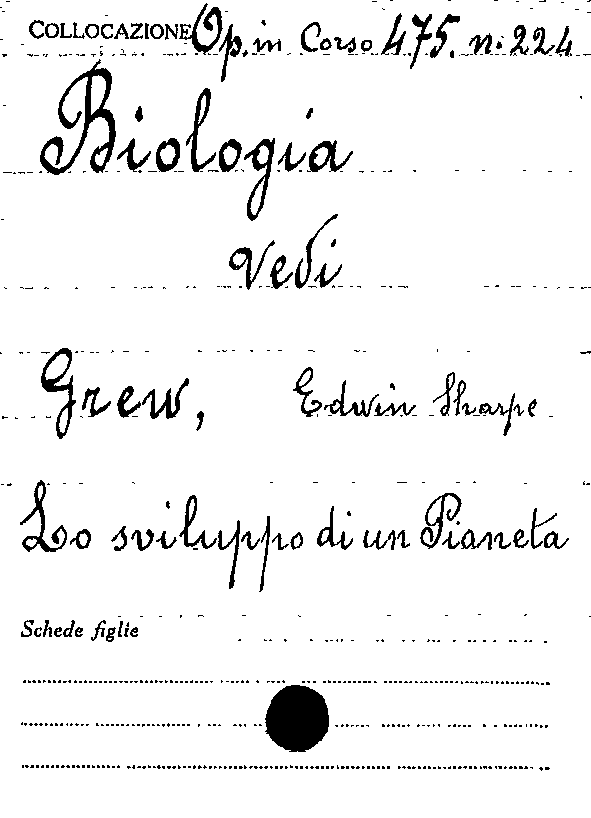 COLLOCAZIONE Op. in Corso 475. n. 224
Biologia
Vedi
Grew, Edwin Sharpe
Lo sviluppo di un Pianeta
Schede figlie